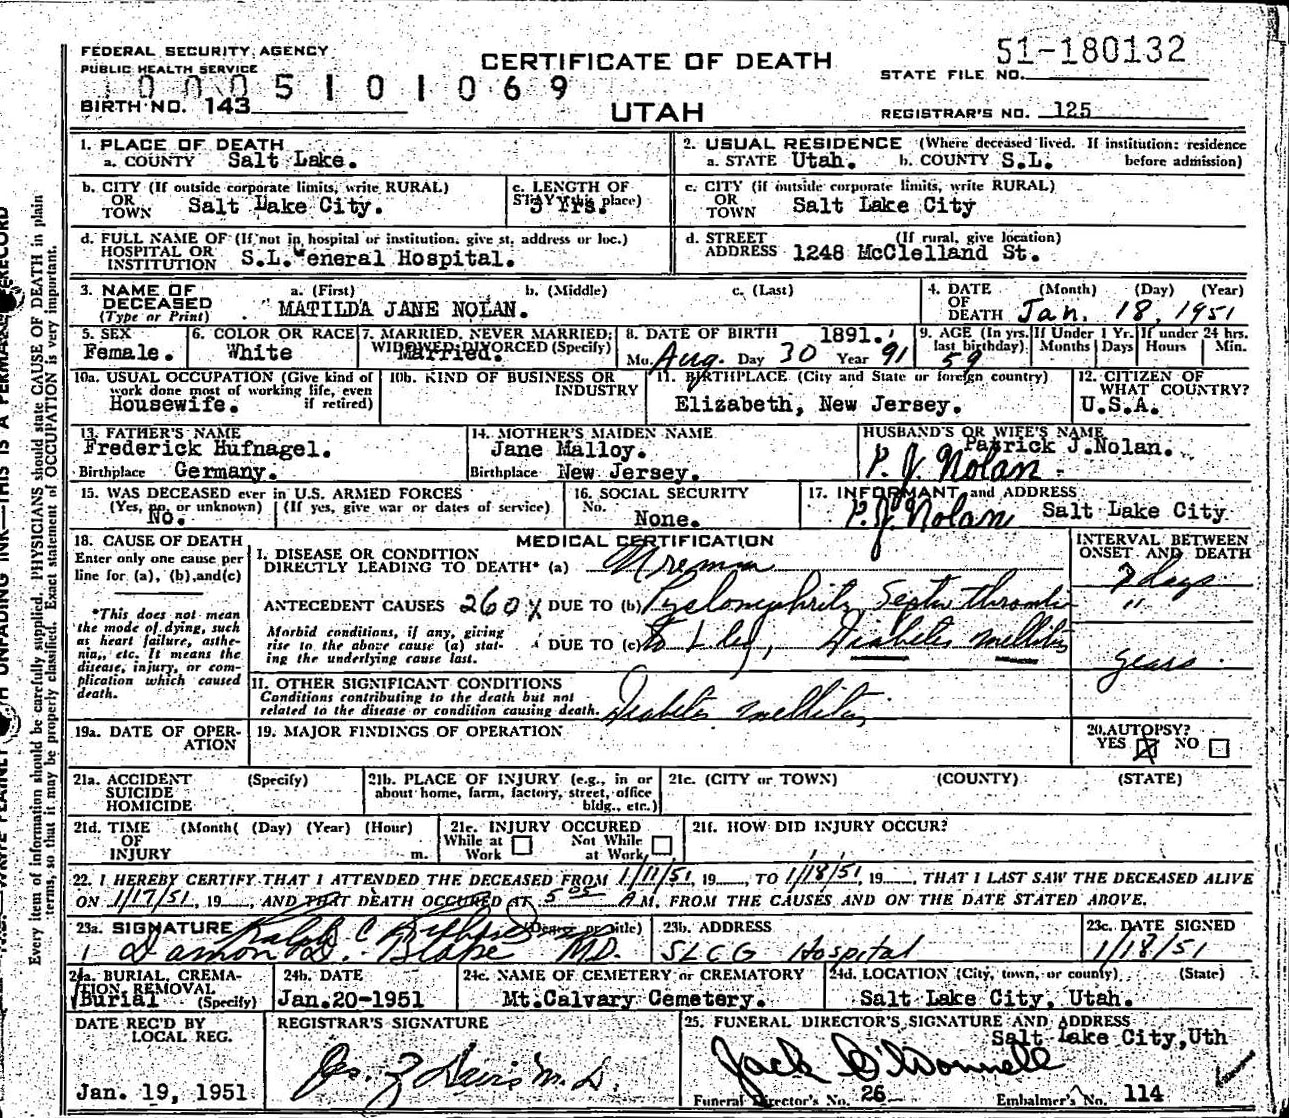 FEDERAL SECURITY AGENCY
PUBLIC HEALTH SERVICE
1 0 0 0 5 1 0 1 0 6 9
BIRTH NO. 143
CERTIFICATE OF DEATH
UTAH
51-180132
STATE FILE NO.
REGISTRAR'S NO. 125
1. PLACE OF DEATH
a. COUNTY Salt Lake.
2. USUAL RESIDENCE (Where deceased lived. If institution: residence before admission)
a. STATE Utah. b. COUNTY S.L.
b. CITY (If outside corporate limits, write RURAL)
OR
TOWN Salt Lake City.
c. LENGTH OF
STAY (in this place)
3 Yrs.
c. CITY (if outside corporate limits, write RURAL)
OR
TOWN Salt Lake City
d. FULL NAME OF (If not in hospital or institution, give st. address or loc.)
HOSPITAL OR
INSTITUTION S.L. General Hospital.
d. STREET (If rural, give location)
ADDRESS 1248 McClelland St.
3. NAME OF DECEASED
(Type or Print)
a. (First) b. (Middle) c. (Last)
MATILDA JANE NOLAN.
4. DATE OF DEATH (Month) (Day) (Year)
Jan. 18, 1951
5. SEX
Female.
6. COLOR OR RACE
White
7. MARRIED, NEVER MARRIED,
WIDOWED, DIVORCED (Specify)
Married.
8. DATE OF BIRTH 1891.
Mo. Aug. Day 30 Year 91
9. AGE (In yrs. last birthday)
59
If Under 1 Yr.
Months Days
If under 24 hrs.
Hours Min.
10a. USUAL OCCUPATION (Give kind of work done most of working life, even if retired)
Housewife.
10b. KIND OF BUSINESS OR INDUSTRY
11. BIRTHPLACE (City and State or foreign country)
Elizabeth, New Jersey.
12. CITIZEN OF WHAT COUNTRY?
U.S.A.
13. FATHER'S NAME
Frederick Hufnagel.
Birthplace Germany.
14. MOTHER'S MAIDEN NAME
Jane Malloy.
Birthplace New Jersey.
HUSBAND'S OR WIFE'S NAME
Patrick J.Nolan.
P. J. Nolan.
15. WAS DECEASED ever in U.S. ARMED FORCES
(Yes, no, or unknown) (If yes, give war or dates of service)
No.
16. SOCIAL SECURITY
No.
None.
17. INFORMANT and ADDRESS
P. J. Nolan Salt Lake City
18. CAUSE OF DEATH
Enter only one cause per line for (a), (b), and (c)
*This does not mean the mode of dying, such as heart failure, asthenia, etc. It means the disease, injury, or complication which caused death.
MEDICAL CERTIFICATION
INTERVAL BETWEEN ONSET AND DEATH
I. DISEASE OR CONDITION
DIRECTLY LEADING TO DEATH* (a) Uremia
days
ANTECEDENT CAUSES 260 X DUE TO (b) Pyelonephritis, Septic thrombi
"
Morbid conditions, if any, giving rise to the above cause (a) stating the underlying cause last.
DUE TO (c) to L. leg, Diabetes mellitus
years
II. OTHER SIGNIFICANT CONDITIONS
Conditions contributing to the death but not related to the disease or condition causing death.
Diabetes mellitus
19a. DATE OF OPERATION
19. MAJOR FINDINGS OF OPERATION
20. AUTOPSY?
YES X NO
21a. ACCIDENT (Specify)
SUICIDE
HOMICIDE
21b. PLACE OF INJURY (e.g., in or about home, farm, factory, street, office bldg., etc.)
21c. (CITY or TOWN) (COUNTY) (STATE)
21d. TIME OF INJURY (Month( (Day) (Year) (Hour)
m.
21e. INJURY OCCURED
While at Work
Not While at Work
21f. HOW DID INJURY OCCUR?
22. I HEREBY CERTIFY THAT I ATTENDED THE DECEASED FROM 1/11/51, 19__, TO 1/18/51, 19__, THAT I LAST SAW THE DECEASED ALIVE
ON 1/17/51, 19__, AND THAT DEATH OCCURED AT 5 05 A.M., FROM THE CAUSES AND ON THE DATE STATED ABOVE.
23a. SIGNATURE (Degree or title)
Ralph C
M.D.
23b. ADDRESS
SLCG Hospital
23c. DATE SIGNED
1/18/51
24a. BURIAL, CREMATION, REMOVAL
Burial (Specify)
24b. DATE
Jan.20-1951
24c. NAME OF CEMETERY or CREMATORY
Mt.Calvary Cemetery.
24d. LOCATION (City, town, or county) (State)
Salt Lake City, Utah.
DATE REC'D BY LOCAL REG.
Jan. 19, 1951
REGISTRAR'S SIGNATURE
Jos. Z Davis M.D.
25. FUNERAL DIRECTOR'S SIGNATURE AND ADDRESS
Salt Lake City, Uth
Jack O'Donnell
Funeral Director's No. 26 Embalmer's No. 114
Every item of information should be carefully supplied. PHYSICIANS should state CAUSE OF DEATH in plain
terms, so that it may be properly classified. Exact statement of OCCUPATION is very important.
WRITE PLAINLY WITH UNFADING INK—THIS IS A PERMANENT RECORD